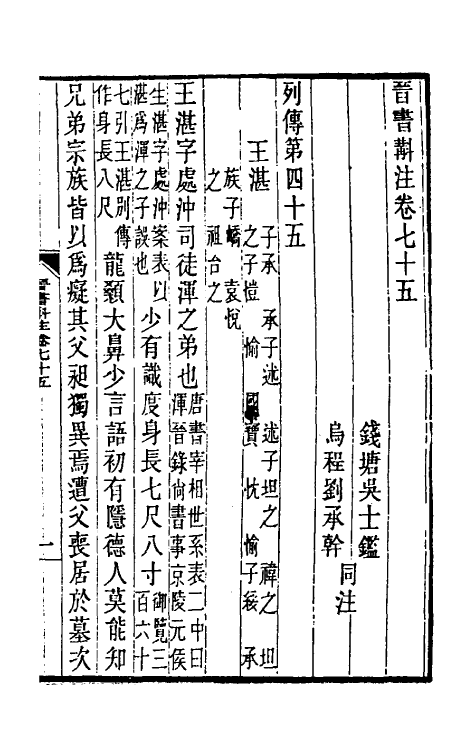 晉書斠注卷七十五
錢塘吳士鑑
烏程劉承幹
同注
列傳第四十五
王湛 子承 承子述 述子坦之 禕之 坦
之子愷 愉 國寶 忱 愉子綏 承
族子嶠 袁悅
之 祖台之
王湛字處沖司徒渾之弟也唐書宰相世系表二中曰
渾晉錄尚書事京陵元侯
生湛字處沖案表以
湛爲渾之子誤也少有識度身長七尺八寸御覽三
百六十
七引王湛別傳
作身長八尺龍顙大鼻少言語初有隱德人莫能知
兄弟宗族皆以爲癡其父昶獨異焉遭父喪居於墓次
晉書斠注卷七十五
一